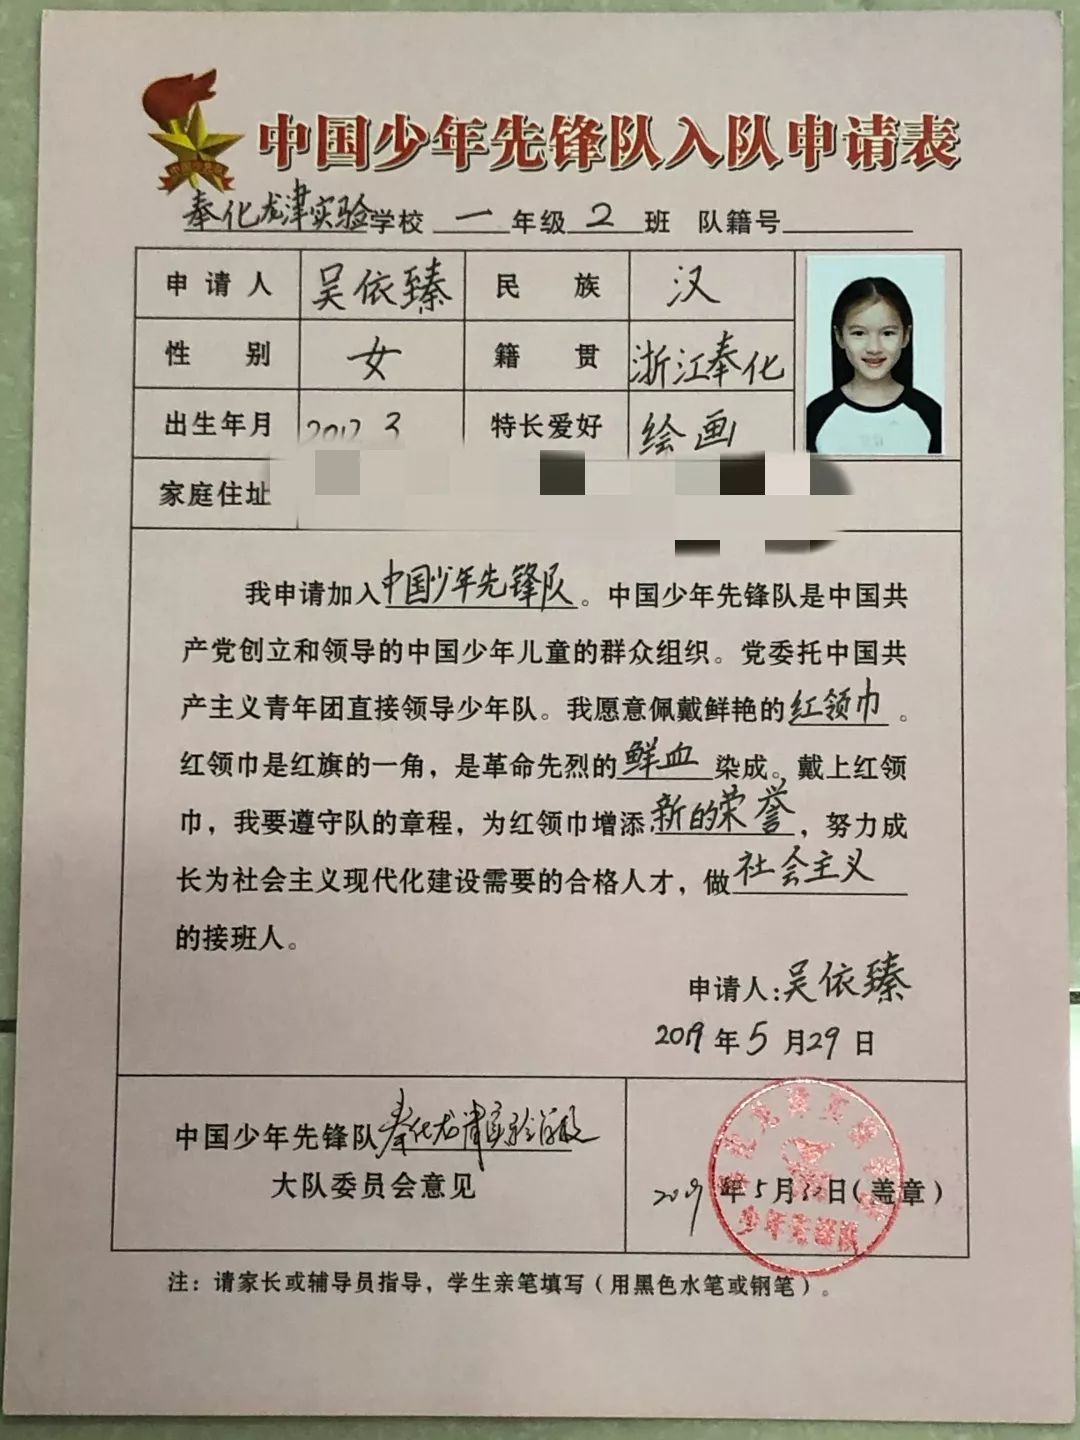 中国少年先锋队入队申请表
奉化龙津实验学校 一 年级 2 班 队籍号
申请人 吴依臻 民族 汉
性别 女 籍贯 浙江奉化
出生年月 2012 3 特长爱好 绘画
家庭住址
我申请加入中国少年先锋队。中国少年先锋队是中国共
产党创立和领导的中国少年儿童的群众组织。党委托中国共
产主义青年团直接领导少年队。我愿意佩戴鲜艳的红领巾。
红领巾是红旗的一角，是革命先烈的鲜血染成。戴上红领
巾，我要遵守队的章程，为红领巾增添新的荣誉，努力成
长为社会主义现代化建设需要的合格人才，做社会主义
的接班人。
申请人:吴依臻
2019年5月29日
中国少年先锋队奉化龙津实验学校
大队委员会意见
2019年5月 日（盖章）
少年先锋队
注：请家长或辅导员指导，学生亲笔填写（用黑色水笔或钢笔）。